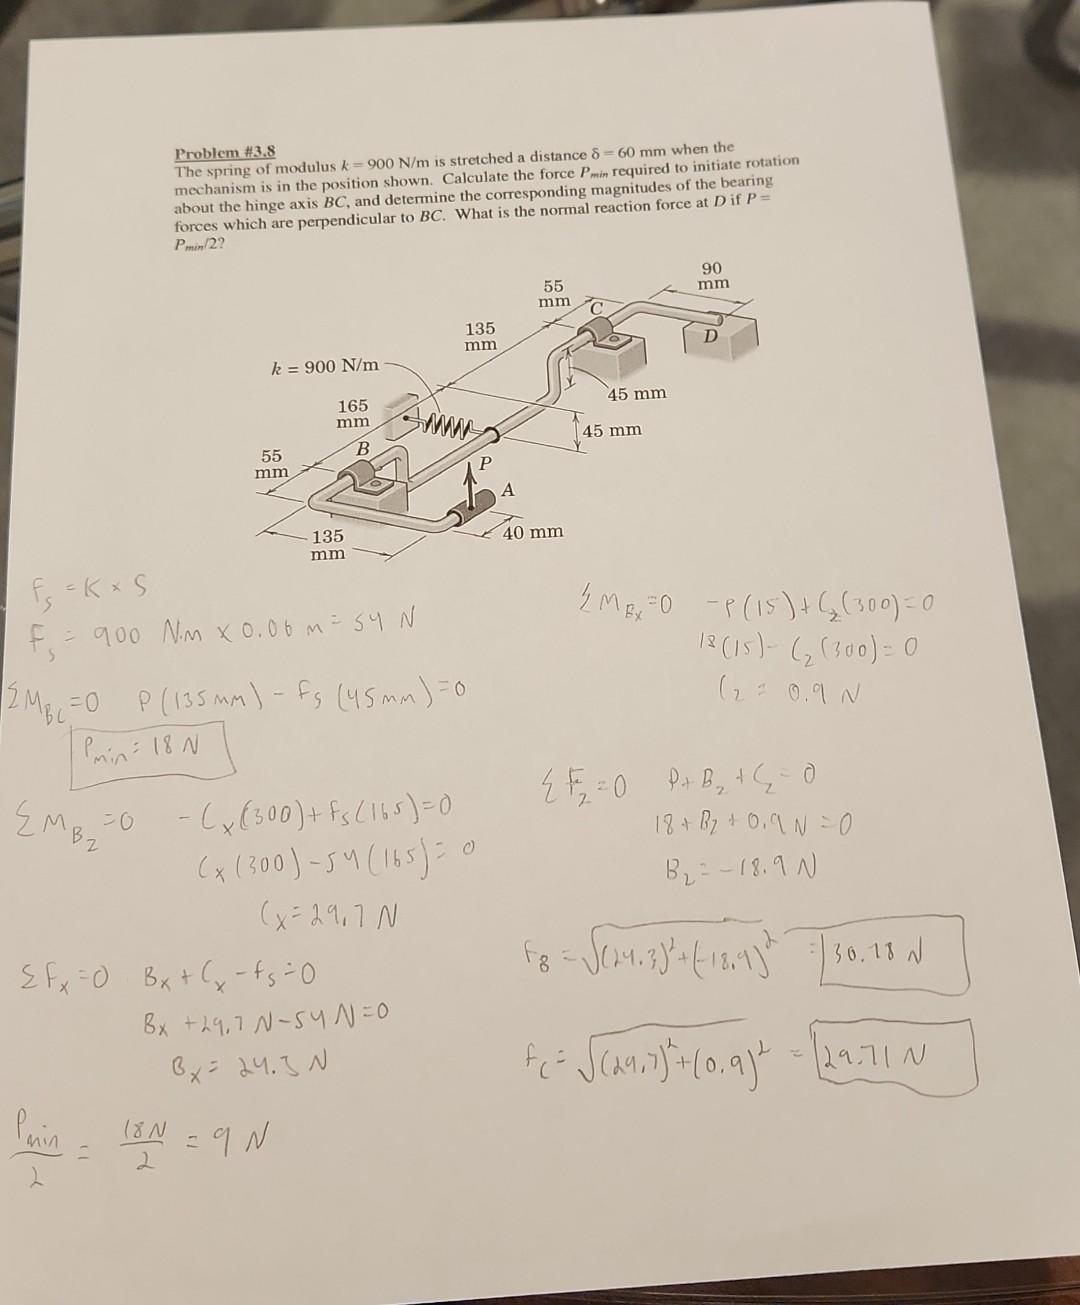 Problem #3.8
The spring of modulus k = 900 N/m is stretched a distance δ = 60 mm when the
mechanism is in the position shown. Calculate the force Pmin required to initiate rotation
about the hinge axis BC, and determine the corresponding magnitudes of the bearing
forces which are perpendicular to BC. What is the normal reaction force at D if P =
Pmin/2?
90
mm
55
mm
C
135
mm
D
k = 900 N/m
45 mm
165
mm
45 mm
B
55
mm
P
A
135
mm
40 mm
Fs = K x S
Fs = 900 N.m x 0.06 m = 54 N
ΣMBC=0 P(135mm) - Fs (45mm)=0
Pmin = 18 N
ΣMBz=0 -Cx(300)+Fs(165)=0
Cx(300)-54(165)=0
Cx=29.7 N
ΣFx=0 Bx + Cx - Fs=0
Bx +29.7 N-54N=0
Bx = 24.3 N
Pmin/2 = 18N/2 = 9 N
ΣMBx=0 -P(15)+Cz(300)=0
18(15)-Cz(300)=0
Cz = 0.9 N
ΣFz=0 P+Bz+Cz=0
18+Bz+0.9N=0
Bz=-18.9 N
FB = √(24.3)²+(-18.9)² = 30.78 N
FC = √(29.7)²+(0.9)² = 29.71 N